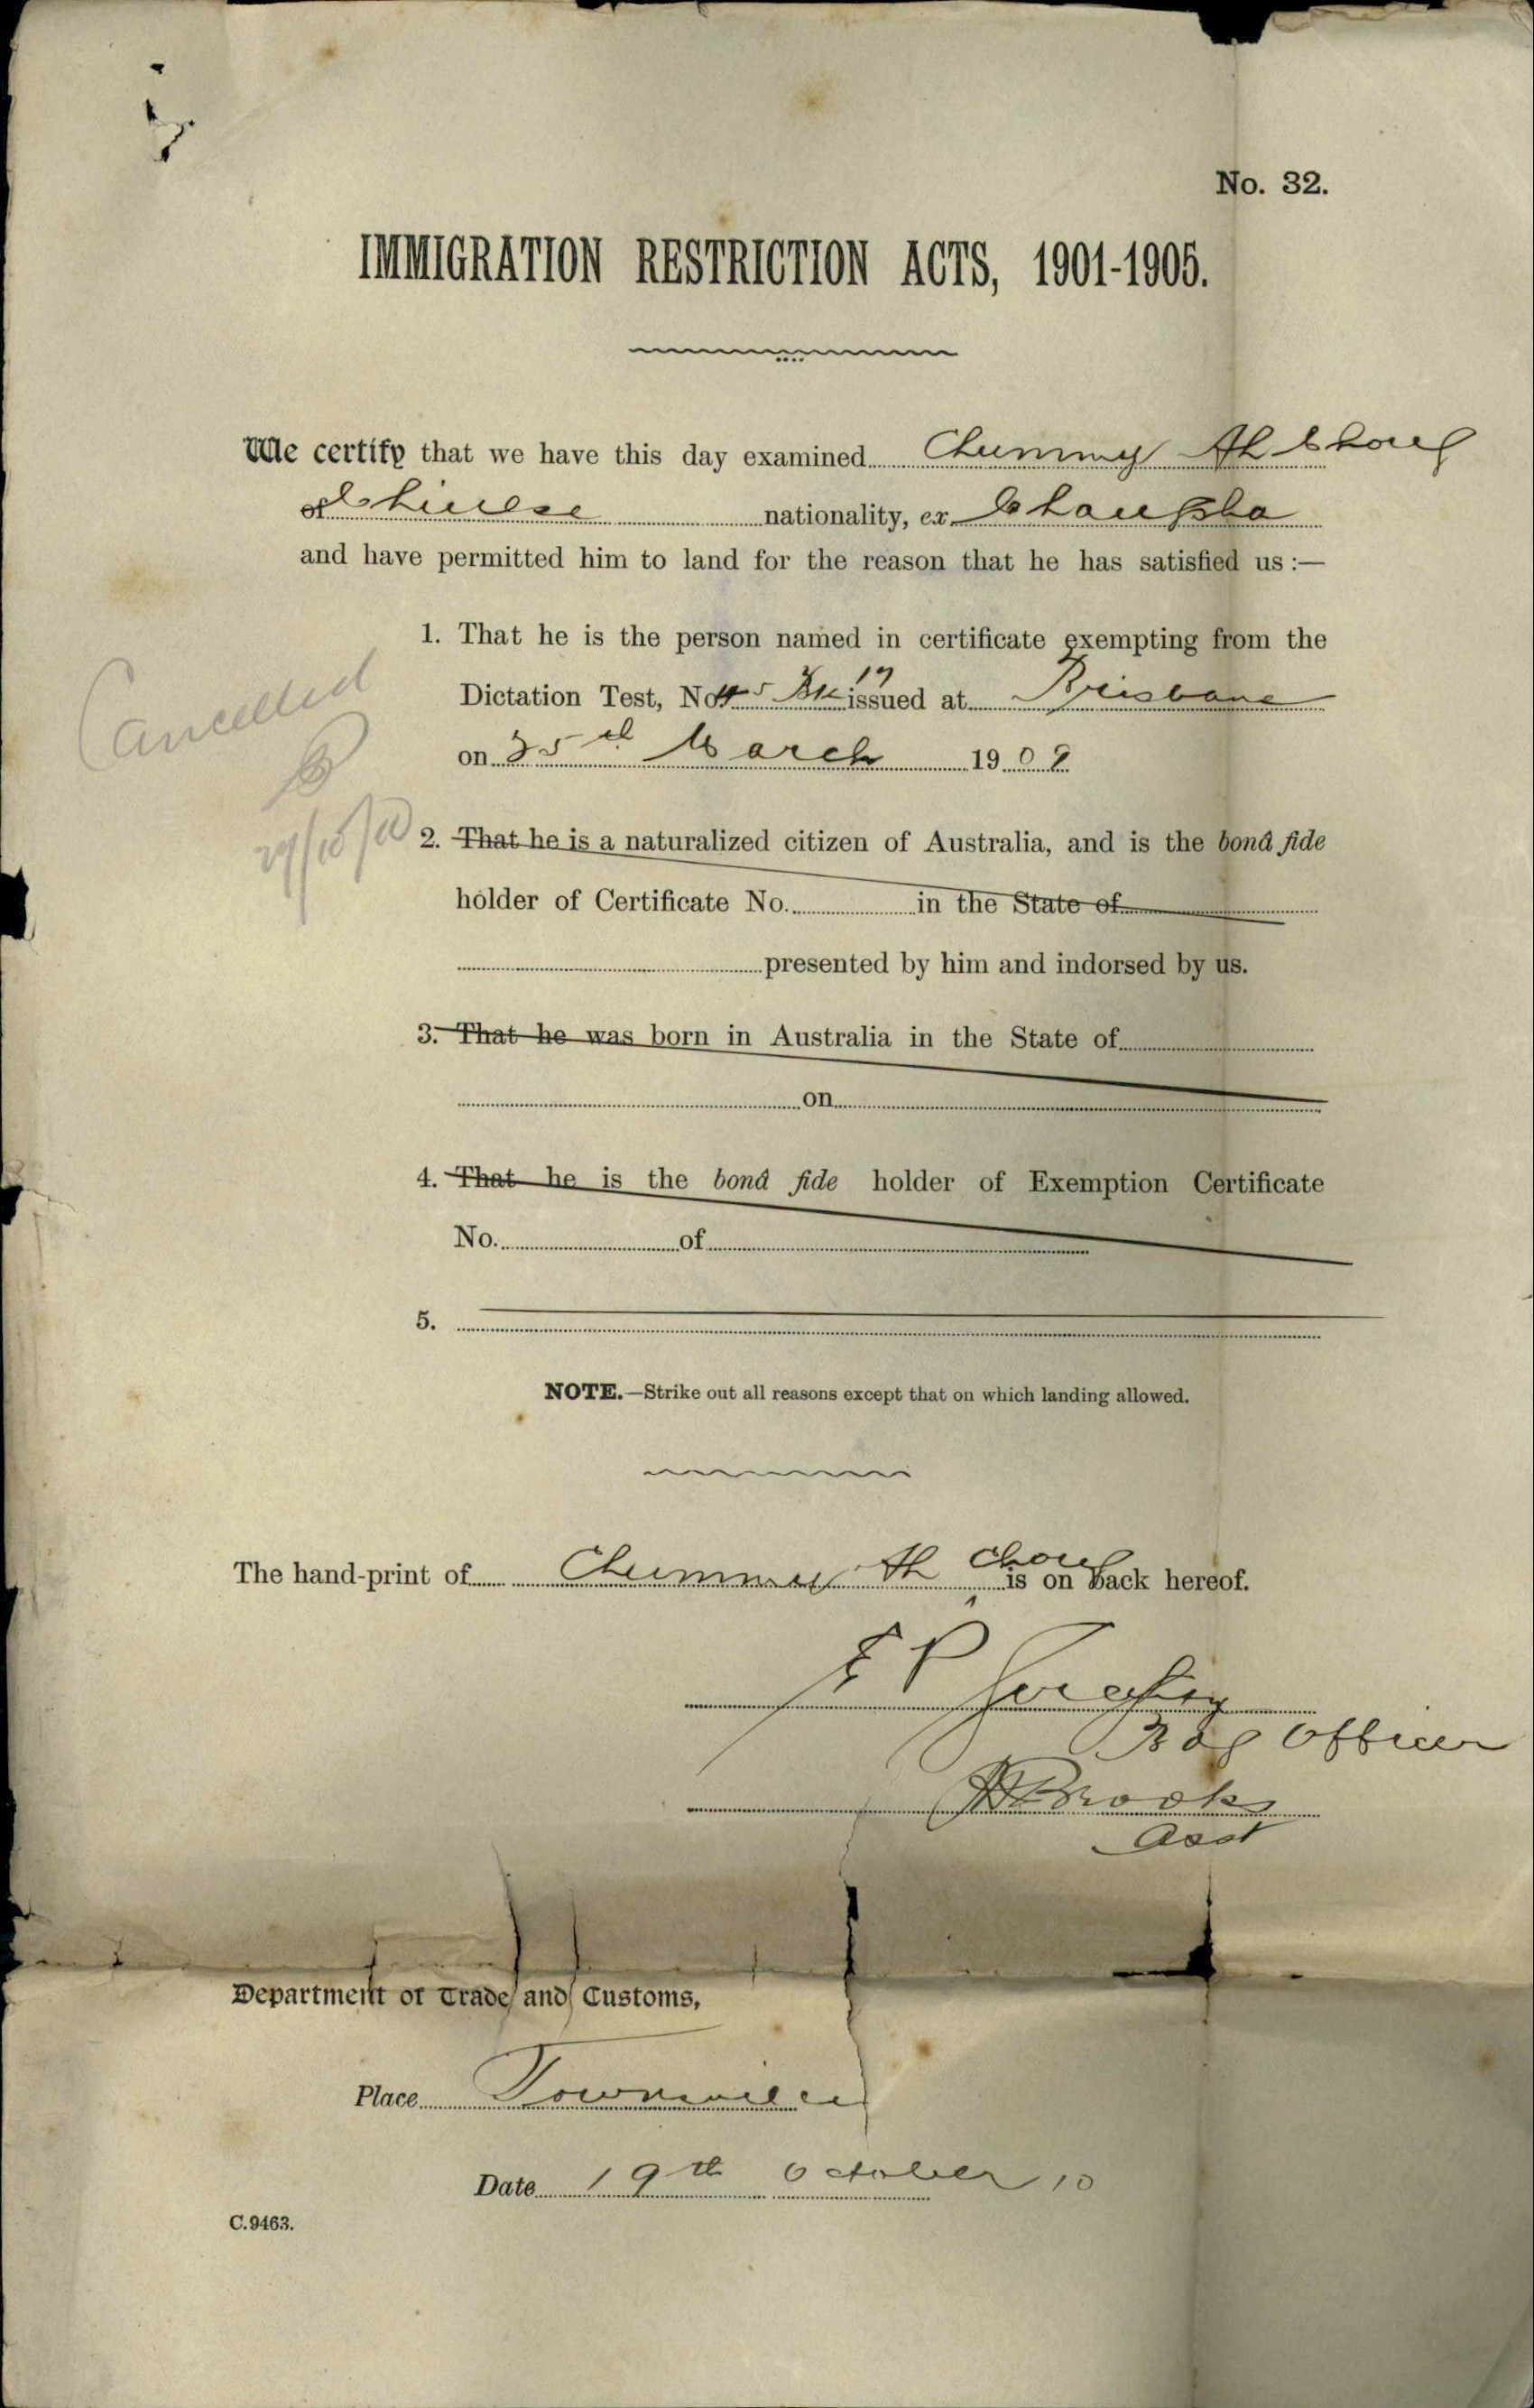 No. 32.
IMMIGRATION RESTRICTION ACTS, 1901-1905.
We certify that we have this day examined Chummy Ah Chong
of Chinese nationality, ex Changsha
and have permitted him to land for the reason that he has satisfied us :—
1. That he is the person named in certificate exempting from the
Dictation Test, No. issued at Brisbane
on 25th March 1909
Cancelled
2. That he is a naturalized citizen of Australia, and is the bonâ fide
holder of Certificate No. in the State of
presented by him and indorsed by us.
3. That he was born in Australia in the State of
on
4. That he is the bonâ fide holder of Exemption Certificate
No. of
5.
NOTE.—Strike out all reasons except that on which landing allowed.
The hand-print of Chummy Ah Chong is on back hereof.
Bdg Officer
Brooks
Asst
Department of Trade and Customs,
Place Townsville
Date 19th October 10
C.9463.